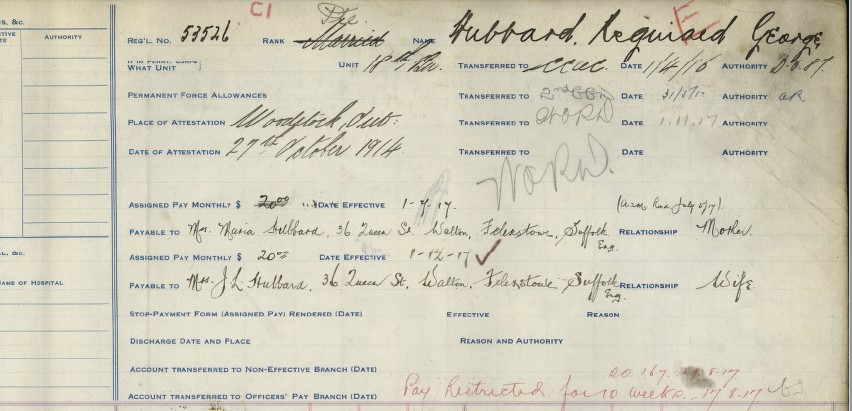 S, &C.
C1
AUTHORITY
REG'L. No. 53526 RANK Pte Married NAME Hubbard, Reguiaed George
WHAT UNIT UNIT 18th Bn. TRANSFERRED TO CCAC. DATE 1/4/16 AUTHORITY D.O.87.
PERMANENT FORCE ALLOWANCES TRANSFERRED TO 2nd CCD DATE 31/5/17 AUTHORITY AR
PLACE OF ATTESTATION Woodstock, Ont: TRANSFERRED TO WORD DATE 1.11.17 AUTHORITY
DATE OF ATTESTATION 27th October 1914 TRANSFERRED TO DATE AUTHORITY
W.O.R.D.
ASSIGNED PAY MONTHLY $ 20.00 DATE EFFECTIVE 1-7-17. July 5/17).
PAYABLE TO Mrs. Maria Hubbard, 36 Queen St. Walton, Felixstowe, Suffolk Eng. RELATIONSHIP Mother
ASSIGNED PAY MONTHLY $ 20.00 DATE EFFECTIVE 1-12-17
NAME OF HOSPITAL
PAYABLE TO Mrs. J.L. Hubbard, 36 Queen St. Walton, Felixstowe Suffolk Eng. RELATIONSHIP Wife
STOP-PAYMENT FORM (ASSIGNED PAY) RENDERED (DATE) EFFECTIVE REASON
DISCHARGE DATE AND PLACE REASON AND AUTHORITY
ACCOUNT TRANSFERRED TO NON-EFFECTIVE BRANCH (DATE) 20.167. 8.17
ACCOUNT TRANSFERRED TO OFFICERS' PAY BRANCH (DATE) Pay Restricted for 10 weeks. 17.8.17